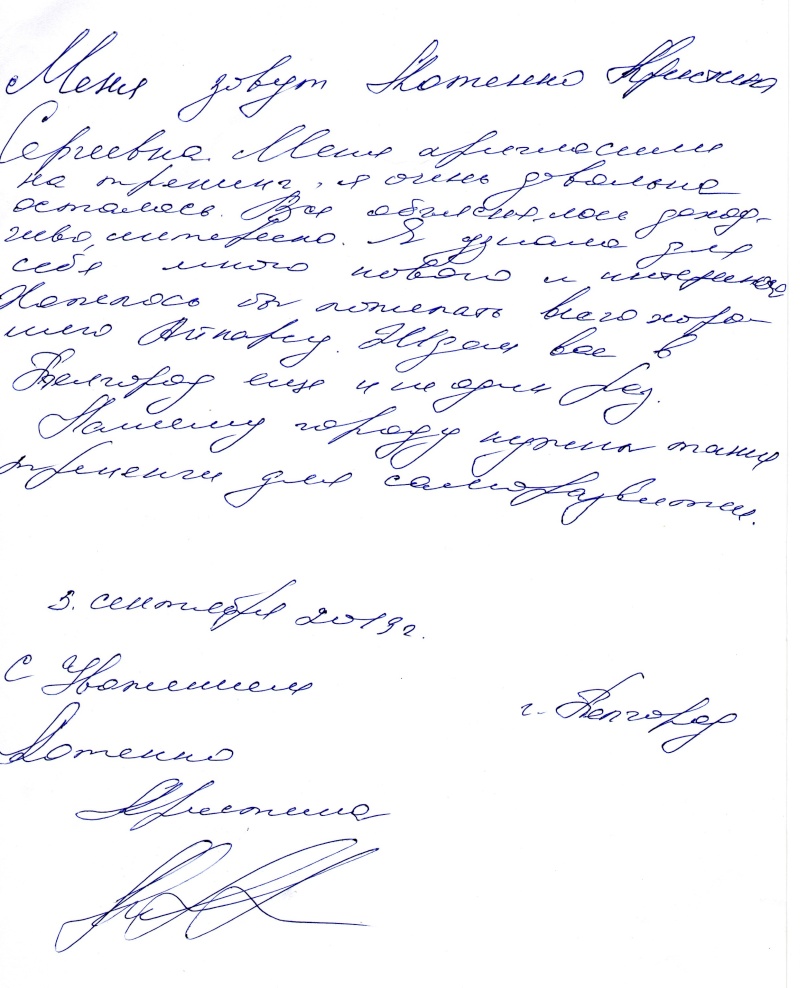 Меня зовут Котенко Кристина
Сергеевна. Меня пригласили
на тренинг, я очень довольна
осталась. Все объяснялось доход-
чиво, интересно. Я узнала для
себя много нового и интересного
Хотелось бы пожелать всего хоро-
шего Айнару. Ждем вас в
Белгород еще и не один раз.
Нашему городу нужны такие
тренинги для саморазвития.
3. сентября 2013г.
С Уважением
г. Белгород
Котенко
Кристина